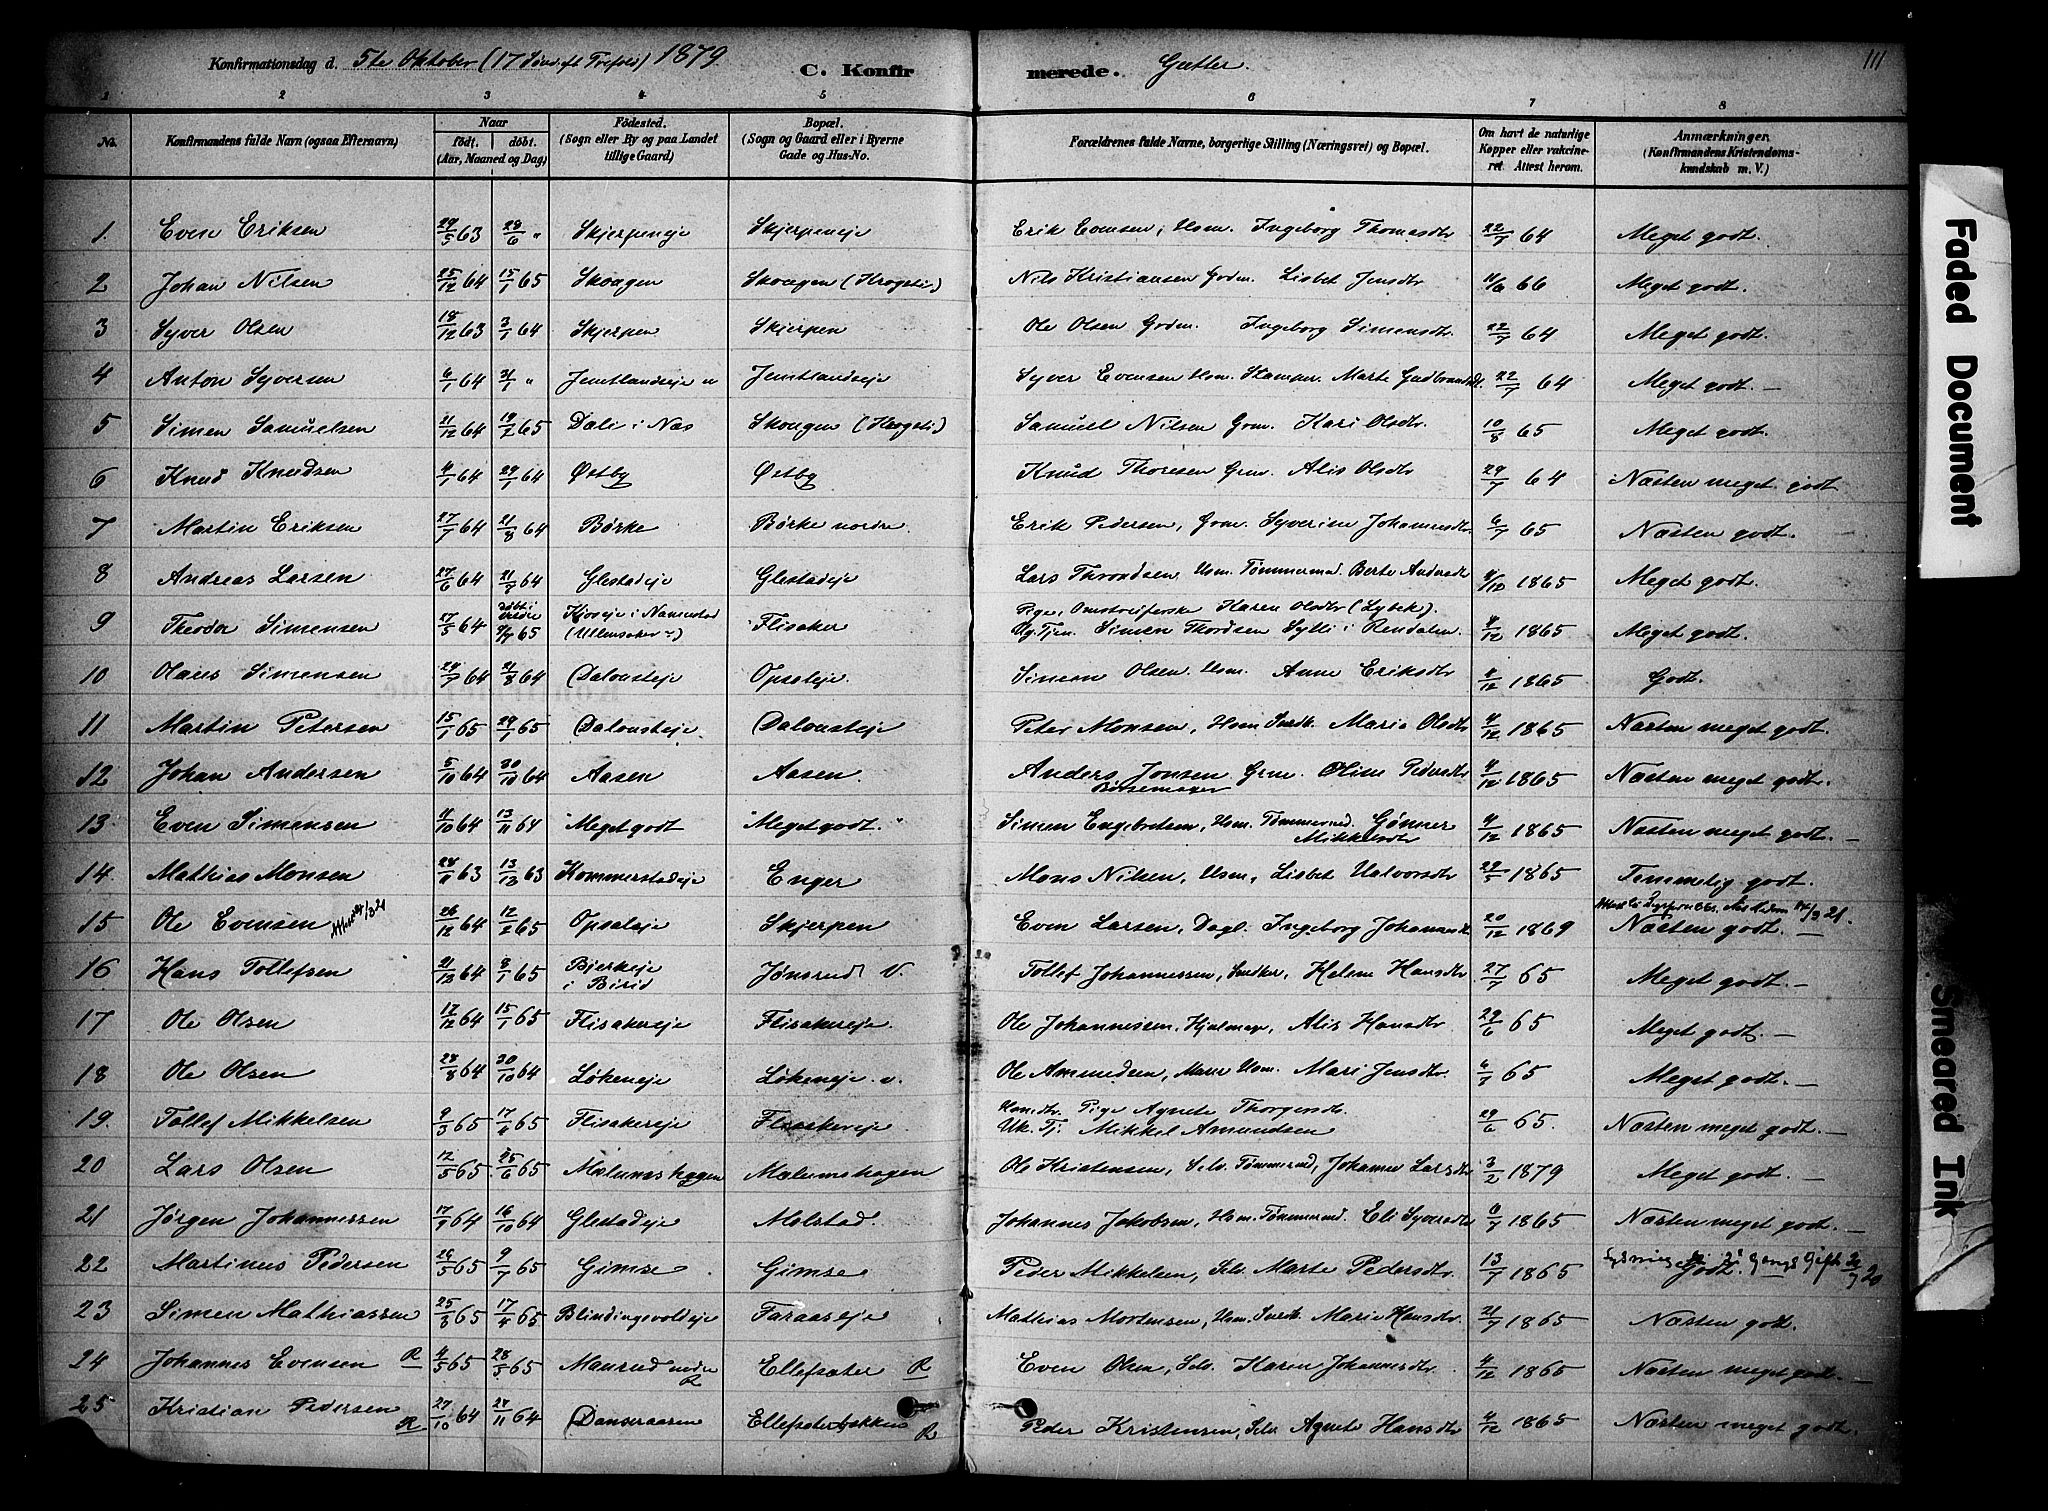 Konfirmationsdag d. 5te Oktober (17 Sønd. eft. Trefold) 1879. C. Konfirmerede. Gutter. 111
1 2 3 4 5 6 7 8
No. Konfirmandens fulde Navn (ogsaa Efternavn) Naar født. døbt. (Aar, Maaned og Dag) Fødested. (Sogn eller By og paa Landet tillige Gaard) Bopæl. (Sogn og Gaard eller i Byerne Gade og Hus-No. Forældrenes fulde Navne, borgerlige Stilling (Næringsvei) og Bopæl. Om havt de naturlige Kopper eller vakcineret. Attest herom. Anmærkninger. (Konfirmandens Kristendomskundskab m. V.)
1. Even Eriksen 29/5 63 28/6 " Skjerpeneje Skjerpeneje Erik Evensen, Hsm. Ingeborg Thomasdtr 22/7 64 Meget godt.
2 Johan Nilsen 25/12 64 15/1 65 Skougen Skougen (Krogsti) Nils Kristiansen Grdm. Lisbet Jensdtr 11/6 66 Meget godt.
3 Syver Olsen 18/12 63 3/1 64 Skjerpen Skjerpen Ole Olsen Grdm. Ingeborg Simensdtr 22/7 64 Meget godt.
4 Anton Syversen 6/1 64 31/1 " Jemtlandseje Jemtlandseje Syver Evensen Hsm. Stamper. Marte Gudbrandsdt. 22/7 64 Meget godt. —
5 Simen Samuelsen 21/12 64 19/2 65 Dali i Næs Skougen (Krogsti) Samuel Nilsen Grm. Kari Olsdtr 10/8 65 Meget godt.
6 Knud Knudsen 4/1 64 29/1 64 Østby Østby Knud Thoresen Grm. Alis Olsdtr 29/7 64 Næsten meget godt
7 Martin Eriksen 27/7 64 21/8 64 Børke Børke nordre Erik Pedersen, Grm. Syverine Johannesdtr 6/7 65 Næsten godt.
8 Andreas Larsen 27/6 64 21/7 64 Glestadeje Glestadeje Lars Throndsen Hsm. Tømmermd. Berte Andersdtr 4/12 1865 Meget godt.
9 Theodor Simensen 27/5 64 Døbt i 65 (Ullensaker) Flisaker Pige, Omstreiferske Karen Olsdtr (Lybek).
Ug. Tjen. Simen Thordsen Sylli i Rendalen. 4/12 1865 Meget godt.
10 Olaus Simensen 24/7 64 21/8 64 Dalousteje Opsaleje. Simen Olsen. Hsm. Anne Eriksdtr 4/12 1865 Godt.
11 Martin Petersen 15/1 65 29/1 65 Dalousteje Dalousteje Peter Monsen, Hsm. Snedk. Marie Olsdtr 4/12 1865 Næsten meget godt.
12 Johan Andersen 5/10 64 30/10 64 Aasen Aasen Anders Jonsen Grm. Oline Pedersdtr 4/12 1865 Næsten meget godt.
Børsemager
13 Even Simensen 11/10 64 13/11 64 Meget godt Meget godt. " Simen Engebretsen, Hsm. Tømmermd. Gønner Mikkelsdtr 4/12 1865 Næsten meget godt. —
14 Mathias Monsen 28/11 63 13/12 63 Kommerstadeje Enger Mons Nilsen, Hsm, Lisbet Halvorsdtr 29/5 1865 Temmelig godt.
15 Ole Evensen 26/12 64 12/2 65 Opsaleje Skjerpen Even Larsen, Dagl. Ingeborg Johannesdt. 20/12 1869 Næsten godt. —
16 Hans Tollefsen 21/12 64 8/1 65 Bjerkeje i Birid Jønsrud V. Tollef Johannessen, Snedker, Helene Hansdtr 27/7 65 Meget godt. —
17 Ole Olsen 12/12 64 15/1 65 Flisakereje Flisakereje. Ole Johannessen, Hjulmager, Alis Hansdtr 29/6 65 Meget godt.
18 Ole Olsen 28/8 64 30/10 64 Løkeneje Løkeneje. v. Ole Amundsen, Murer Hsm. Mari Jensdtr. 6/7 65 Meget godt. —
19. Tollef Mikkelsen 9/3 65 17/4 65 Flisakereje Flisakereje Pige Agnete Thorgersdtr.
Uk. Tj: Mikkel Amundsen 29/6 65. Næsten meget godt. —
20 Lars Olsen 12/5 65 25/6 65 Mælumshagen Mælumshagen Ole Kristensen, Selv. Tømmermd, Johanne Larsdtr 3/2 1879 Meget godt. —
21 Jørgen Johannessen 17/9 64 16/10 64 Glestadeje Molstad. Johannes Jakobsen, Hsm. Tømmermd. Eli Syversdtr 6/7 1865 Næsten meget godt. —
22 Martinus Pedersen 26/5 65 9/7 65 Gimse Gimse Peder Mikkelsen, Selv. Marte Pedersdtr. 13/7 1865 Godt. 2' Gangs Gift 20
23 Simen Mathiassen 25/3 65 17/4 65 Blindingsvoldeje Faraaseje Mathias Mortensen, Hsm. Snedk. Marie Hansdtr. 21/7 1865 Næsten godt.
24 Johannes Evensen R 4/5 65 28/5 65 Maurud nedre R Ellefsæter R Even Olsen, Selv. Karen Johannesdtr. 4/12 1865 Næsten meget godt. —
25 Kristian Pedersen R 27/10 64 27/11 64 Danseraaen Ellefsæterbakken R Peder Kristensen, Selv. Agnete Hansdtr 4/12 1865 Næsten meget godt.
Faded Document
Smeared Ink